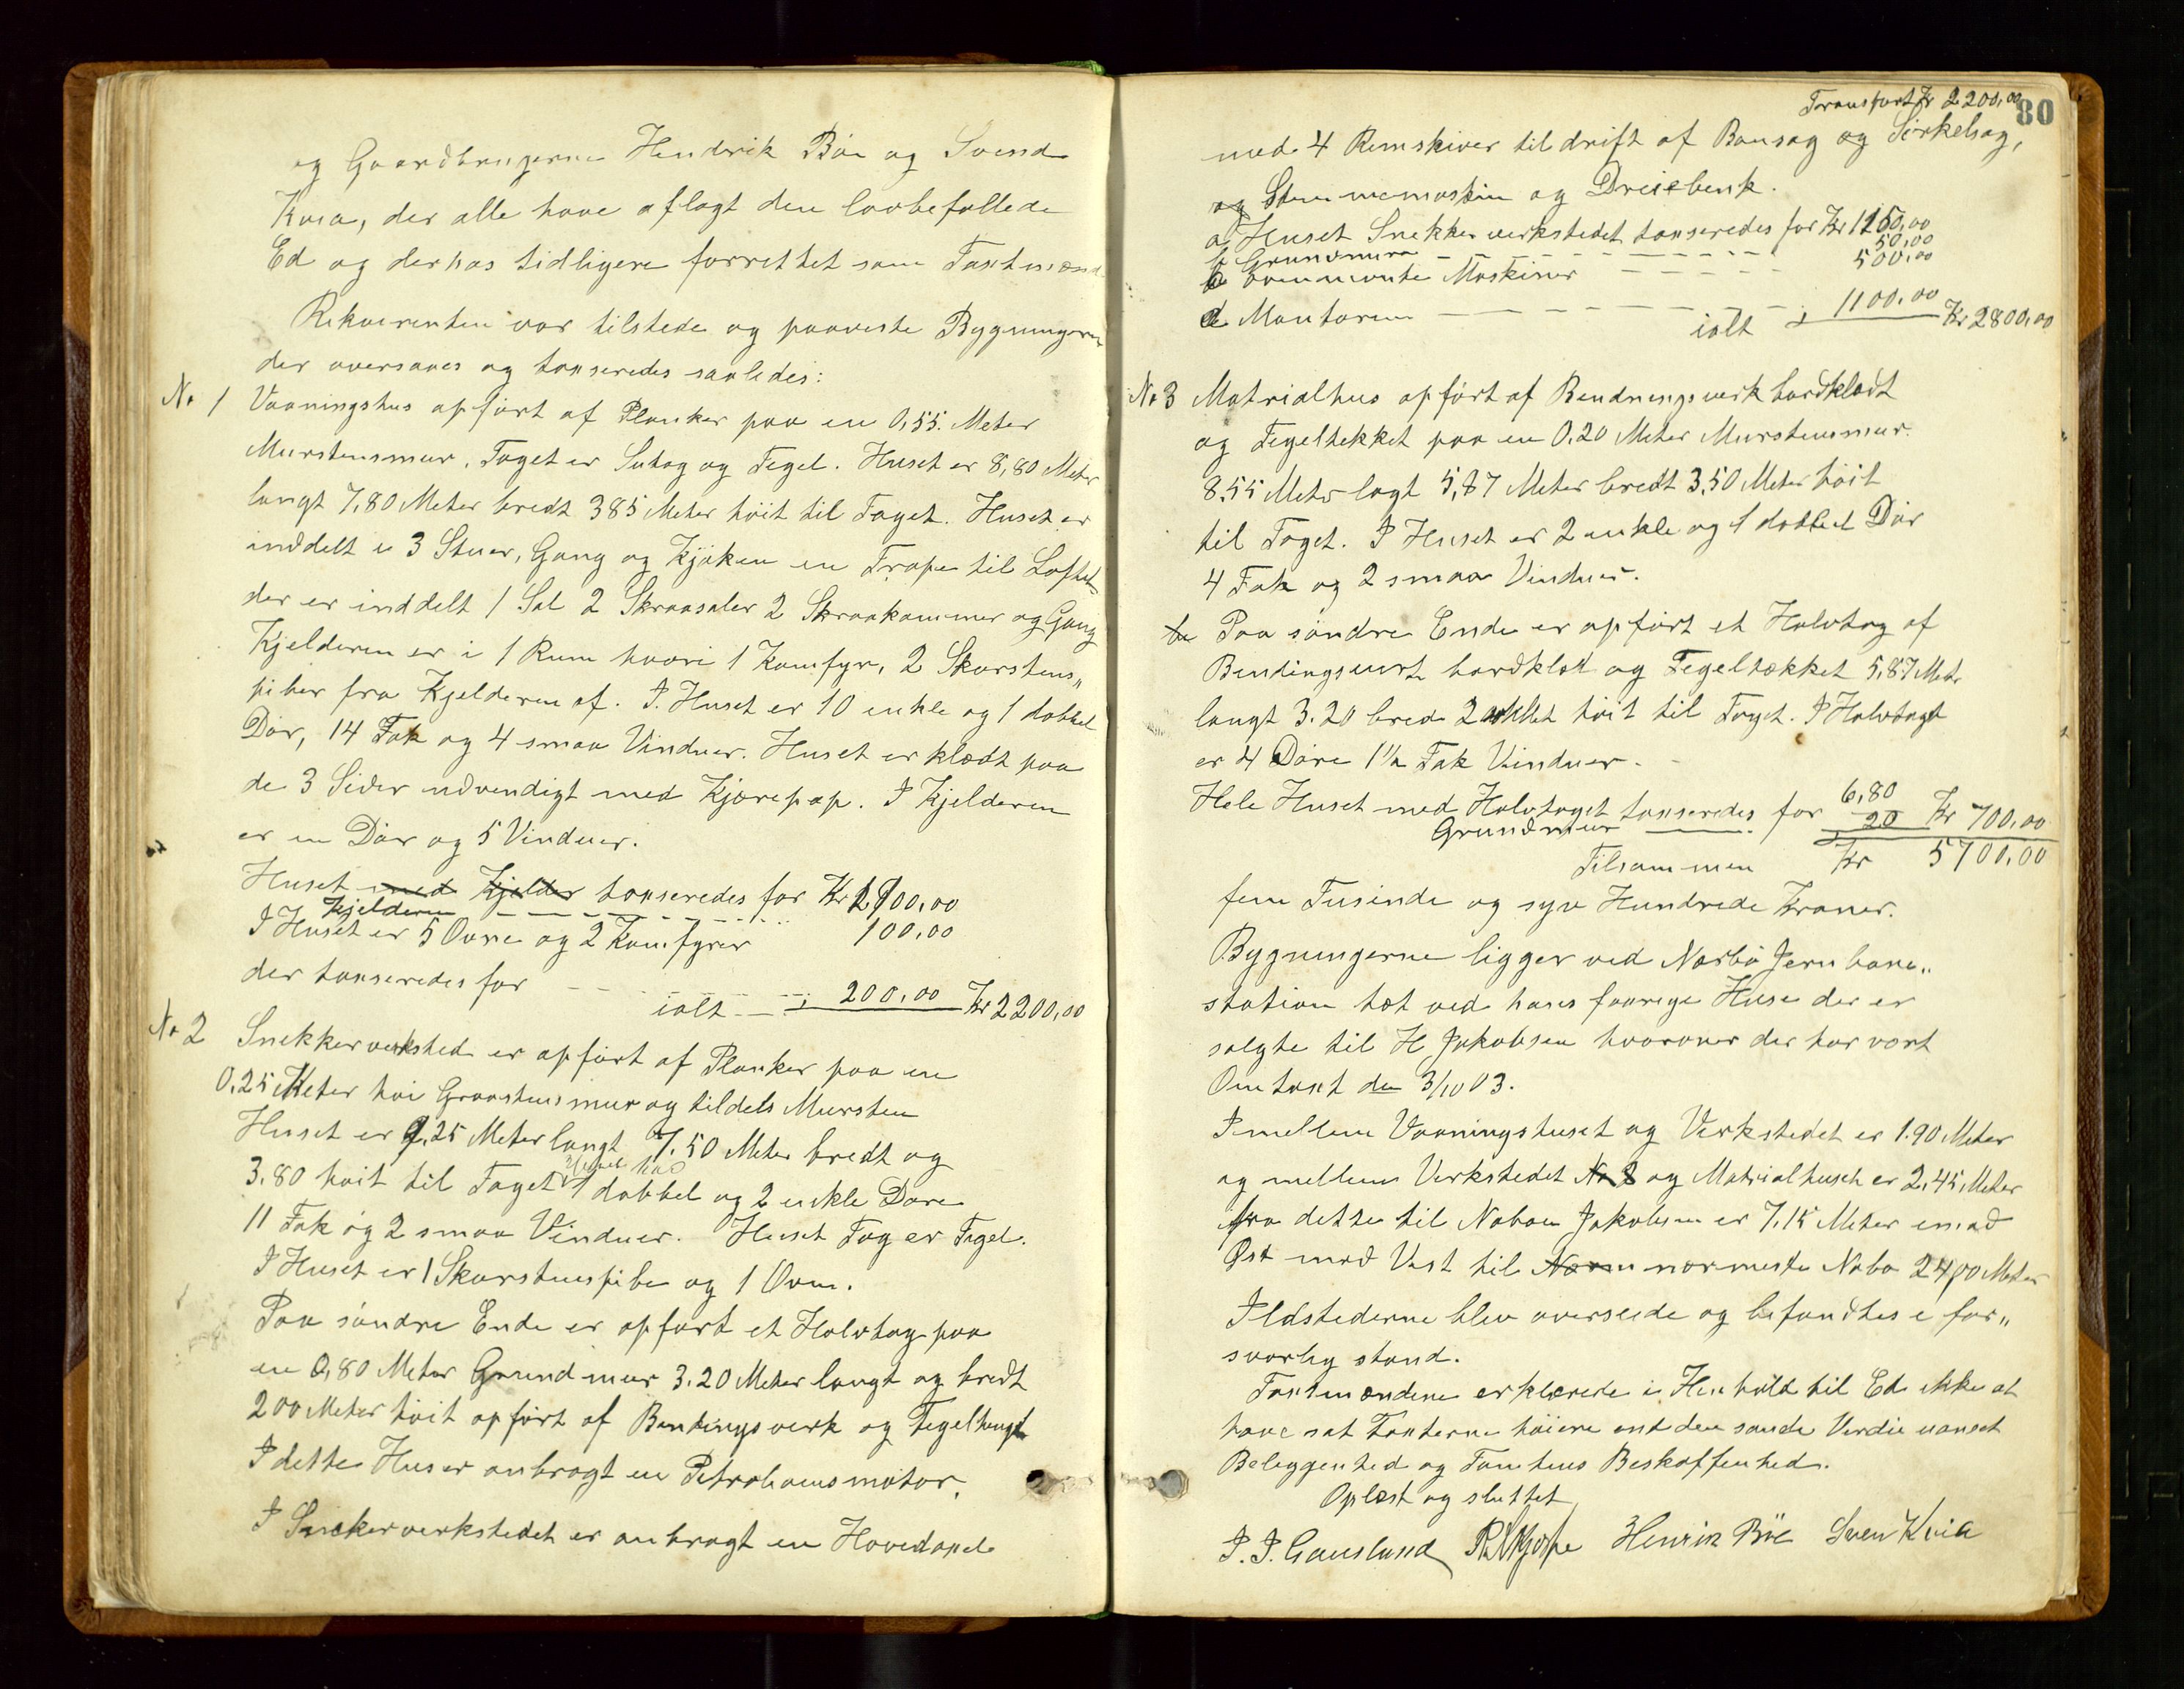 og Gaardbrugerne Hendrik Böe og Svend
Kvia, der alle have aflagt den lovbefallede
Ed og derhos tidligere forrettet som Taxtmænd
Rekvirenten var tilstede og paaviste Bygningerne
der oversaaes og taxseredes saaledes:
No 1 Vaaningshus opfört af Planker paa en 0,55. Meter
Murstensmur. Taget er Sutag og Tegel. Huset er 8,80 Meter
langt 7,80 Meter bredt 385 Meter höit til Taget. Huset er
inddelt i 3 Stuer, Gang og Kjöken en Trape til Loftet
der er inddelt 1 Sal 2 Skraasaler 2 Skraakammer og Gang
Kjelderen er i 1 Rum hvori 1 Komfyr, 2 Skorstens„
piber fra Kjelderen af. I Huset er 10 enkle og 1 dobbel
Dör, 14 Fak og 4 smaa Vinduer. Huset er klædt paa
de 3 Sider udvendigt med Kjærepap. I Kjelderen
er en Dör og 5 Vinduer.
Huset med Kjelder taxseredes for Kr 1900,00
Kjelderen
I Huset er 5 Ovne og 2 Komfyrer 100,00
der taxseredes for 200,00
ialt Kr 2200,00
No 2 Snekkerverksted er opfört af Planker paa en
0.25 Meter höi Graastensmur og tildels Mursten
Huset er 9,25 Meter langt 7.50 Meter bredt og
3.80 höit til Taget 1 dobbel og 2 enkle Döre
11 Fak og 2 smaa Vinduer. Huset Tag er Tegel.
I Huset er 1 Skorstenspibe og 1 Ovn.
Paa söndre Ende er opfört et Halvtag paa
en 0,80 Meter Grundmur 3.20 Meter langt og bredt
200 Meter höit opfört af Bentingsverk og Tegelhengt
I dette Hus er anbragt en Petroliumsmotor.
I Snekerverkstedet er anbragt en Hovedaxel
Transport Kr 2200,00
80
med 4 Remskiver til drift af Bansag og Sirkelsag,
og Stemmemaskin og Dreiebenk.
a Huset Snekkerverkstedet taxseredes for Kr 1150,00
b Grundmura 50,00
c ovennevnte Maskiner 500,00
d Motoren 1100,00
ialt Kr 2800,00
No 3 Matrialhus opfört af Bendningsverk bordklædt
og Tegeltekket paa en 0.20 Meter Murstensmur.
8.55 Meter lagt 5,87 Meter bredt 3.50 Meter höit
til Taget. I Huset er 2 enkle og 1 dobbel Dör
4 Fak og 2 smaa Vinduer.
Paa söndre Ende er opfört et Halvtag af
Bendingsverk bordklæt og Tegeltækket 5,87 Meter
langt 3.20 bred 2 Met höit til Taget. I Halvtaget
er 4 Döre 1½ Fak Vinduer.
Hele Huset med Halvtaget taxseredes for 6,80
Grundmur 20 Kr 700,00
Tilsammen Kr 5700,00
fem Tusinde og syv Hundrede Kroner.
Bygningerne ligger ved Nærbö Jernbane„
station tæt ved hans forrige Huse der er
solgte til H Jakobsen hvorover der har vært
Omtaxt den 3/10 03.
Imellem Vaaningshuset og Verkstedet er 1.90 Meter
og mellem Verkstedet No 2 og Matrialhuset er 2.45 Meter
fra dette til Naboen Jakobsen er 7.15 Meter imod
Öst mod Vest til Nærm nærmeste Nabo 24,00 Meter
Ildstederne blev overseede og befandtes i for„
svarlig stand.
Taxtmændene erklærede i Henhold til Ed ikke at
have sat Taxterne höiere end den sande Verdie uanset
Beliggenhed og Tomtens Beskaffenhed.
Oplæst og sluttet
J. J. Gauslund Henrik Böe Sven Kvia